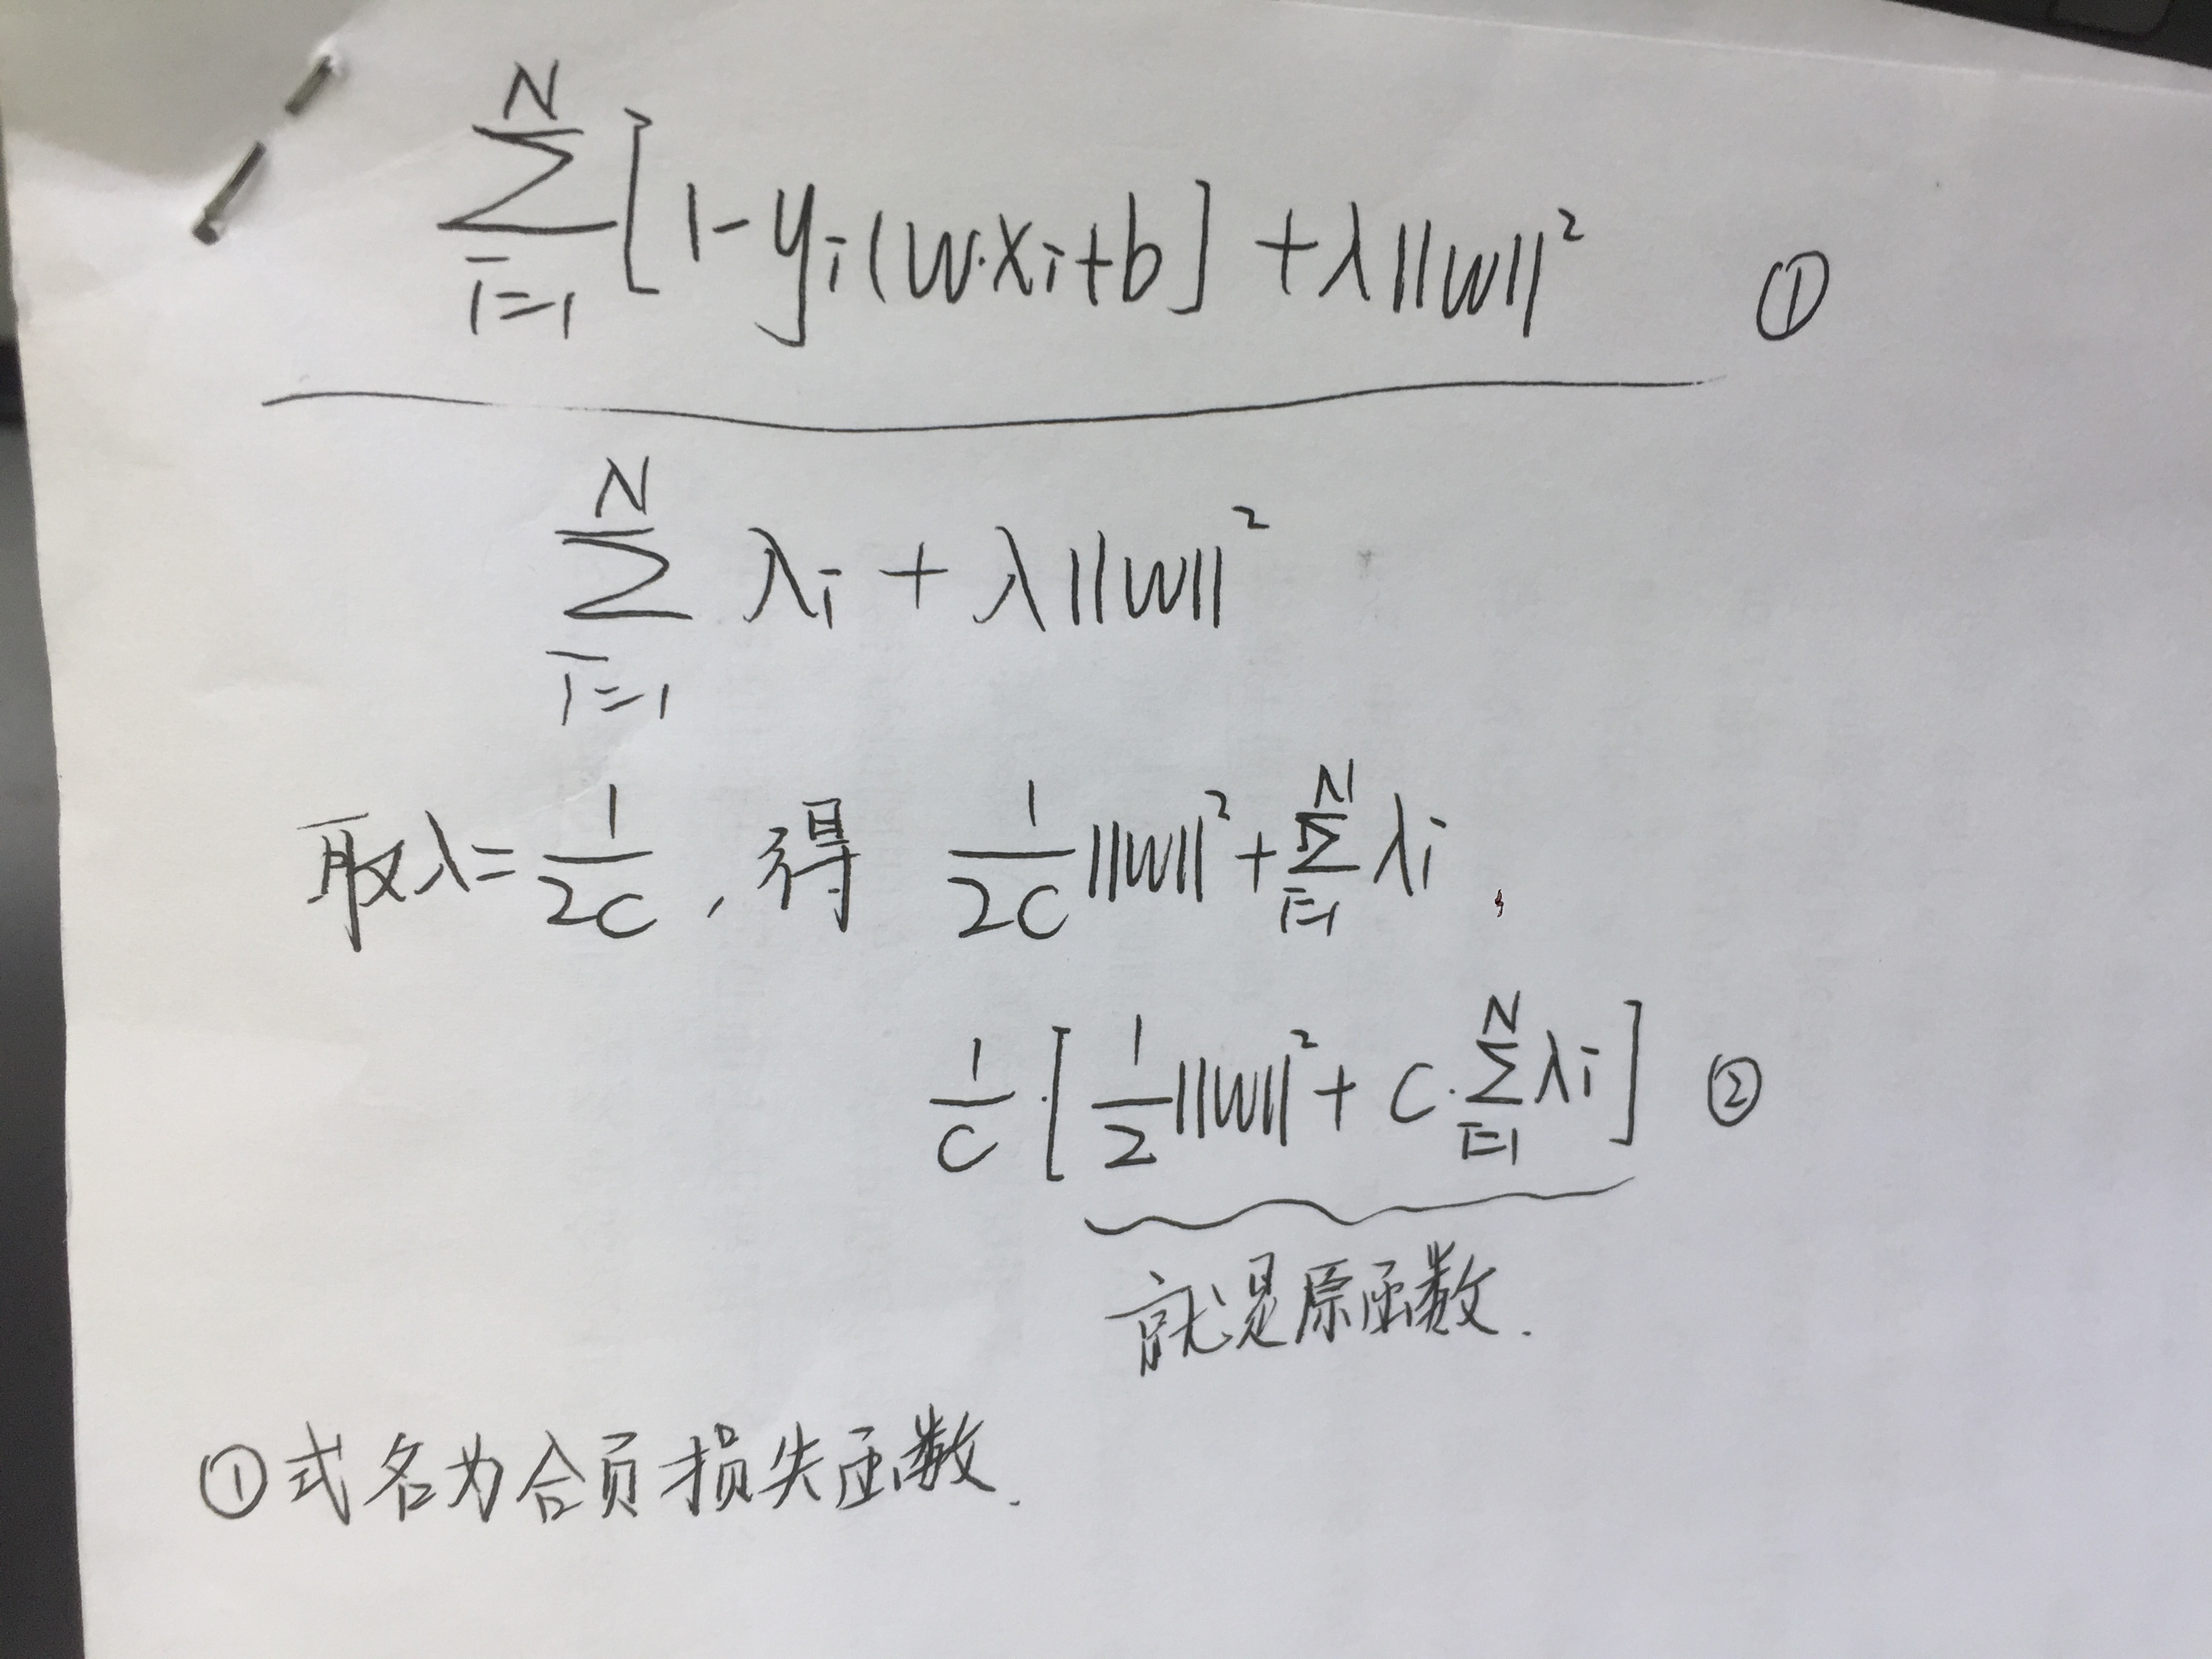 ∑_{i=1}^{N} [1-y_i(w·x_i+b] + λ||w||² ①
∑_{i=1}^{N} λ_i + λ||w||²
取λ=1/2C, 得 1/2C ||w||² + ∑_{i=1}^{N} λ_i
1/C·[1/2 ||w||² + C·∑_{i=1}^{N} λ_i] ②
就是原函数.
①式名为合页损失函数.